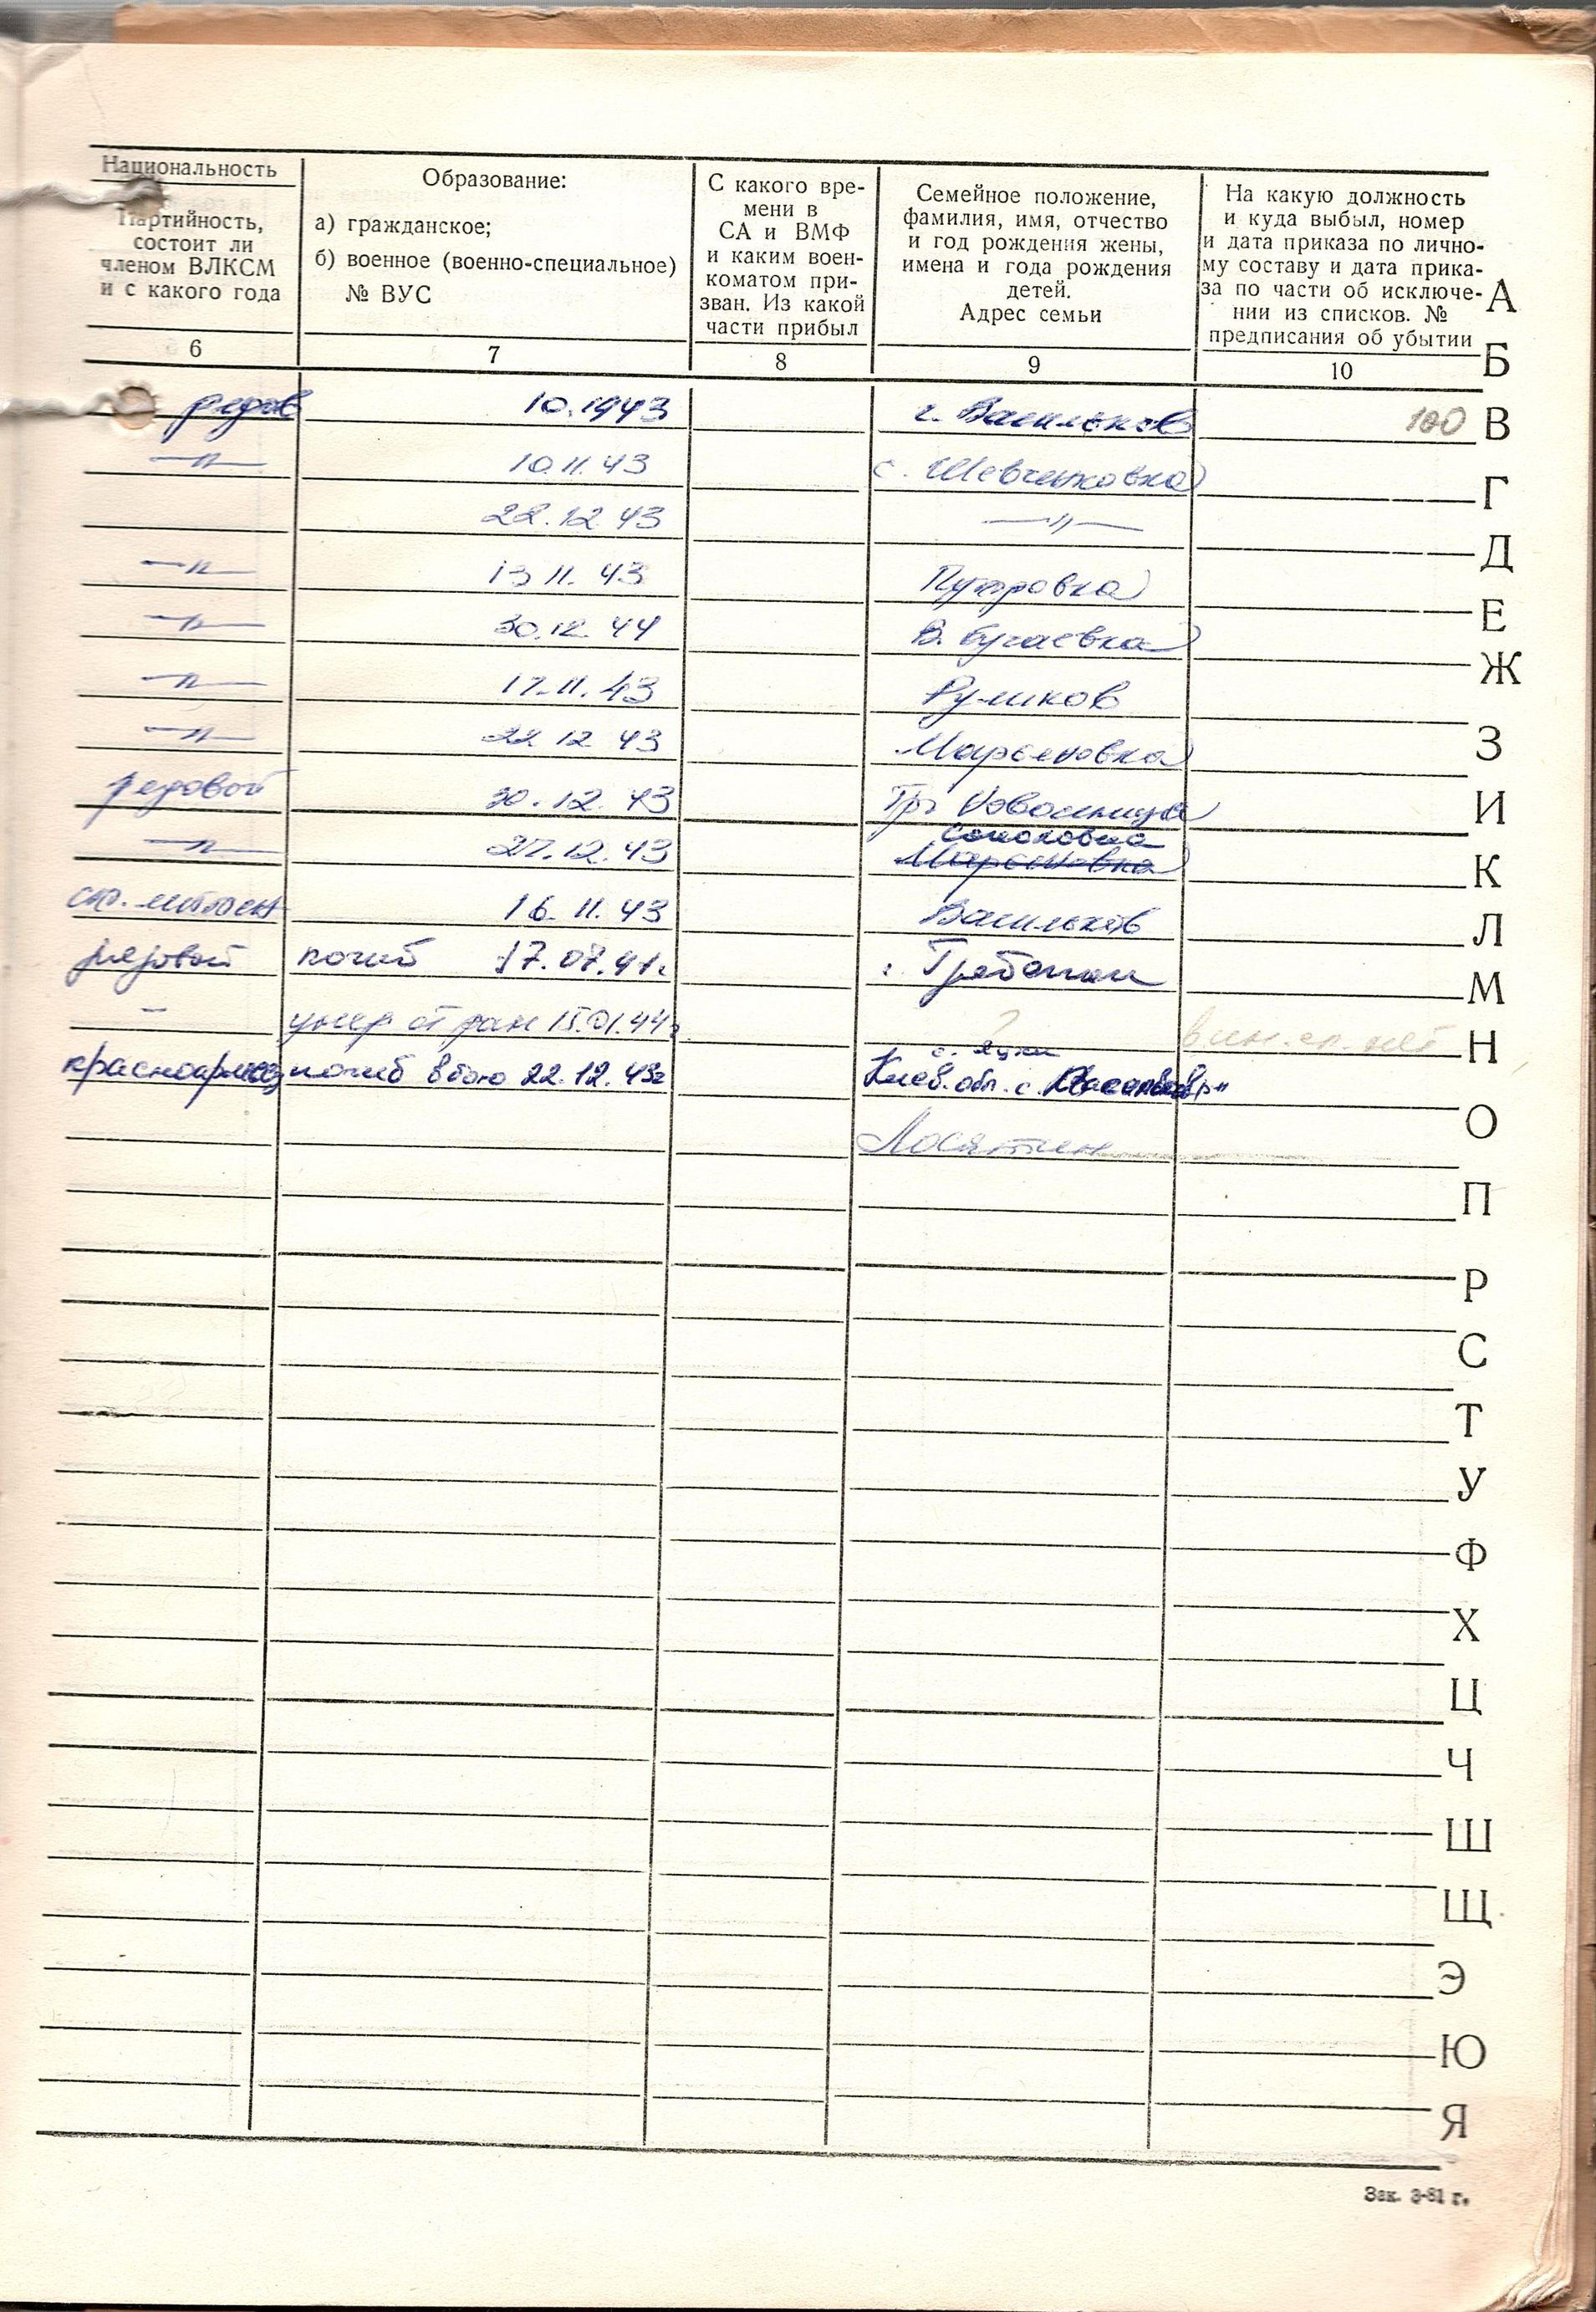 Национальность
Партийность,
состоит ли
членом ВЛКСМ
и с какого года
Образование:
а) гражданское;
б) военное (военно-специальное)
№ ВУС
С какого вре-
мени в
СА и ВМФ
и каким воен-
коматом при-
зван. Из какой
части прибыл
Семейное положение,
фамилия, имя, отчество
и год рождения жены,
имена и года рождения
детей.
Адрес семьи
На какую должность
и куда выбыл, номер
и дата приказа по лично-
му составу и дата прика-
за по части об исключе-
нии из списков. №
предписания об убытии
6 7 8 9 10
рядов 10.1943 г. Васильков 100
—"— 10.11.43 с. Шевченковка
22.12.43 —"—
—"— 13 11. 43 Путровка
—"— 30.12.44 В. Бугаевка
—"— 17.11.43 Руликов
—"— 22 12 43 Марьяновка
рядовой 30.12.43
—"— 27.12.43 Соколовка
Марьяновка
16.11.43 Васильков
рядовой погиб 17.07.41г. г. Гребенки
— умер от ран 15.01.44г ?
красноармеец погиб в бою 22.12.43г Киев. обл. с.
Лосятин
А
Б
В
Г
Д
Е
Ж
З
И
К
Л
М
Н
О
П
Р
С
Т
У
Ф
Х
Ц
Ч
Ш
Щ
Э
Ю
Я
Зак. 3-81 г.